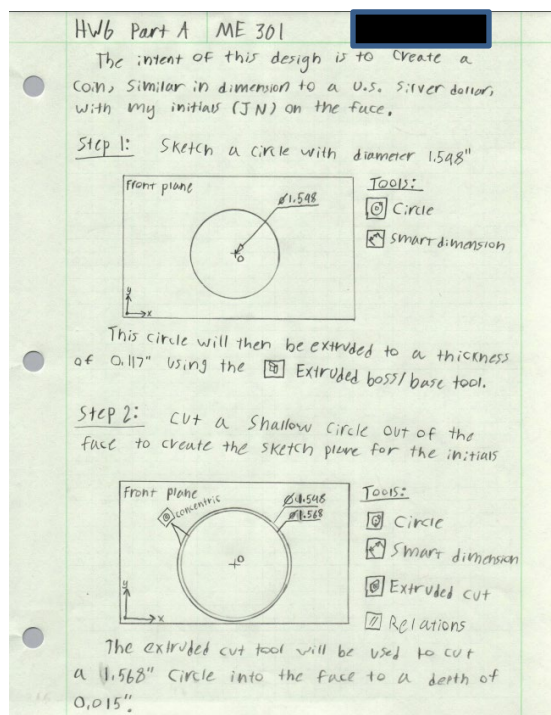 HW6 Part A ME 301
The intent of this design is to create a
coin, similar in dimension to a U.S. silver dollar,
with my initials (JN) on the face.
Step 1: Sketch a circle with diameter 1.598"
Front plane
Ø1.598
Tools:
Circle
Smart dimension
y
x
This circle will then be extruded to a thickness
of 0.117" using the Extruded boss/base tool.
Step 2: Cut a shallow circle out of the
face to create the sketch plane for the initials
Front plane
concentric
Ø1.598
Ø1.568
Tools:
Circle
Smart dimension
Extruded cut
Relations
y
x
The extruded cut tool will be used to cut
a 1.568" circle into the face to a depth of
0.015".